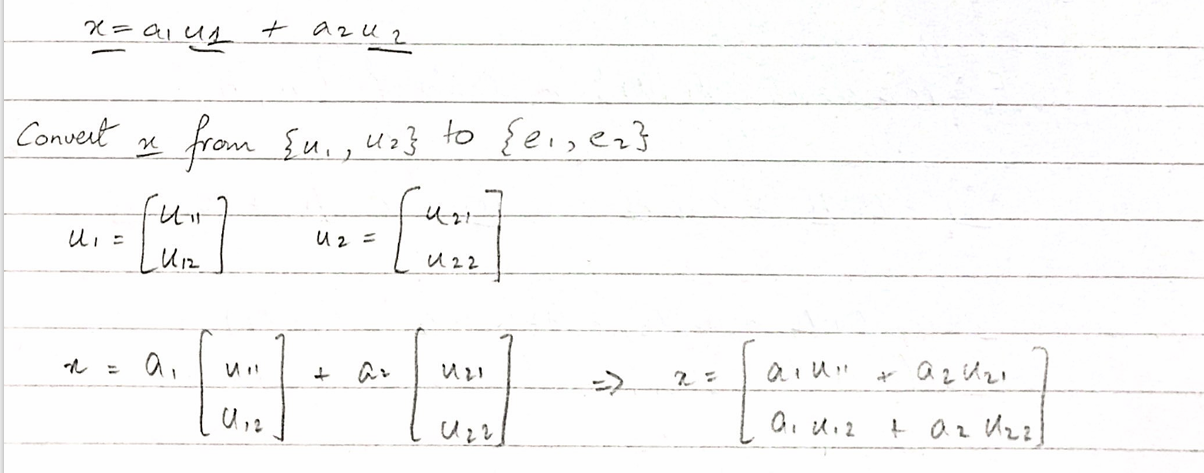 x = a₁u₁ + a₂u₂
Convert x from {u₁, u₂} to {e₁, e₂}
u₁ = [u₁₁ u₁₂] u₂ = [u₂₁ u₂₂]
x = a₁ [u₁₁ u₁₂] + a₂ [u₂₁ u₂₂] => x = [a₁u₁₁ + a₂u₂₁ a₁u₁₂ + a₂u₂₂]